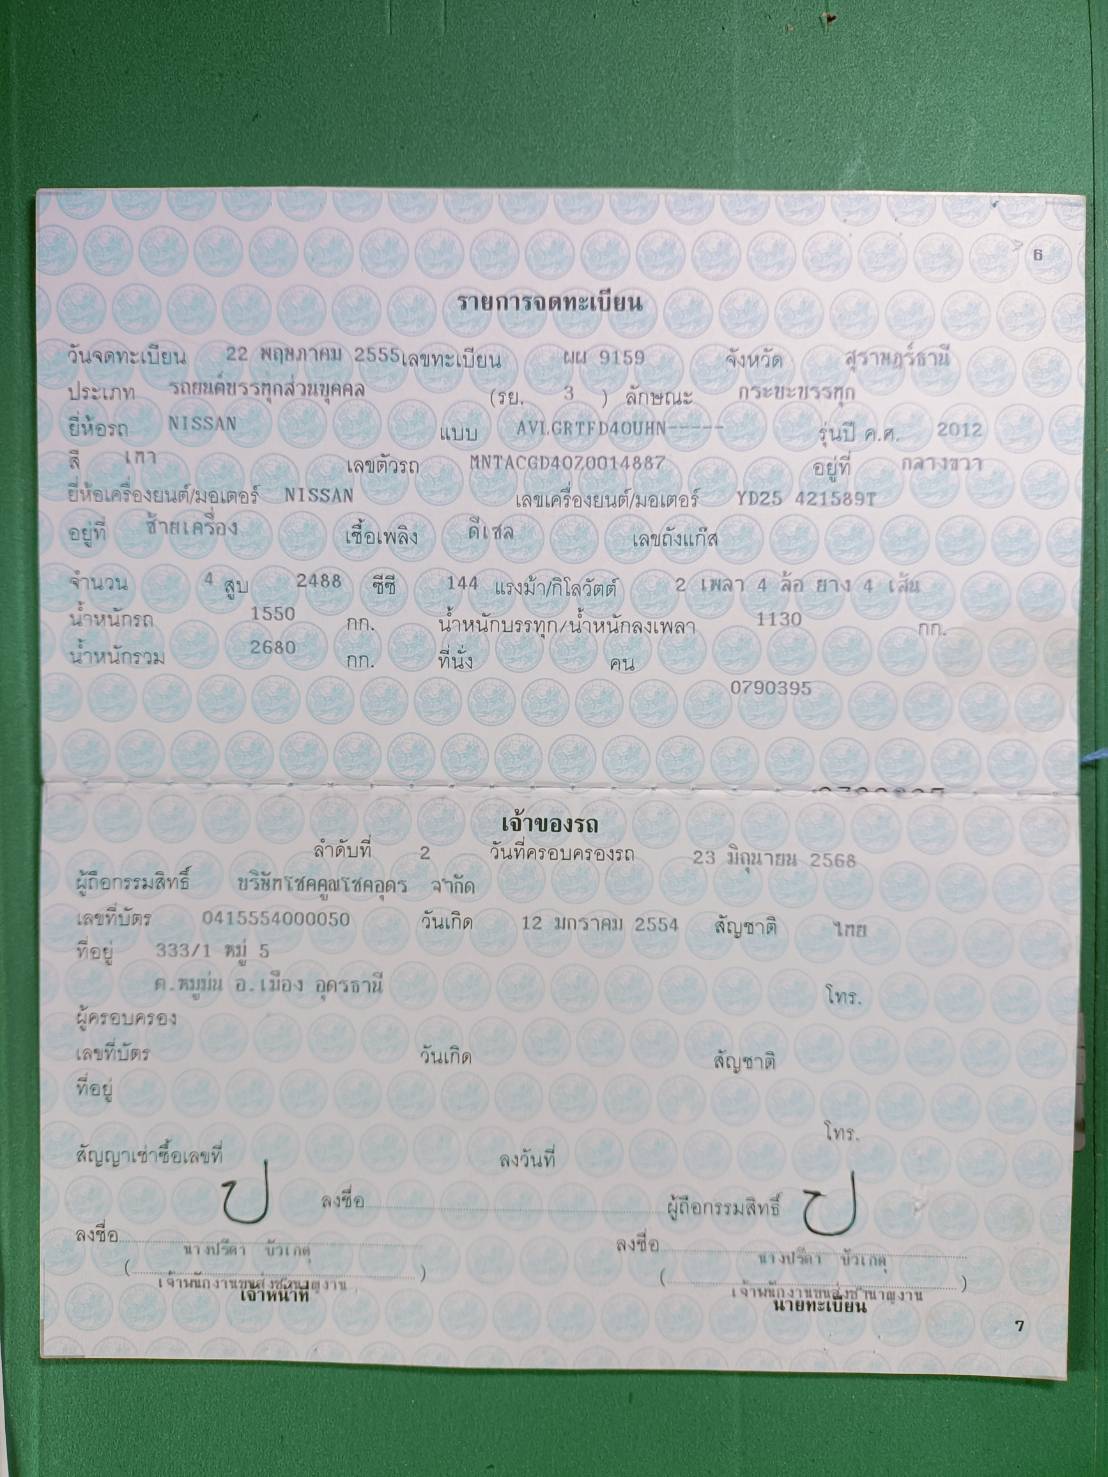 6
รายการจดทะเบียน
วันจดทะเบียน 22 พฤษภาคม 2555 เลขทะเบียน ผผ 9159 จังหวัด สุราษฎร์ธานี
ประเภท รถยนต์บรรทุกส่วนบุคคล (รย. 3 ) ลักษณะ กระบะบรรทุก
ยี่ห้อรถ NISSAN แบบ AVLGRTFD40UHN----- รุ่นปี ค.ศ. 2012
สี เทา เลขตัวรถ MNTACGD40Z0014887 อยู่ที่ กลางขวา
ยี่ห้อเครื่องยนต์/มอเตอร์ NISSAN เลขเครื่องยนต์/มอเตอร์ YD25 421589T
อยู่ที่ ซ้ายเครื่อง เชื้อเพลิง ดีเซล เลขถังแก๊ส
จำนวน 4 สูบ 2488 ซีซี 144 แรงม้า/กิโลวัตต์ 2 เพลา 4 ล้อ ยาง 4 เส้น
น้ำหนักรถ 1550 กก. น้ำหนักบรรทุก/น้ำหนักลงเพลา 1130 กก.
น้ำหนักรวม 2680 กก. ที่นั่ง คน
0790395
เจ้าของรถ
ลำดับที่ 2 วันที่ครอบครองรถ 23 มิถุนายน 2568
ผู้ถือกรรมสิทธิ์ บริษัทโชคคูณโชคอุดร จำกัด
เลขที่บัตร 0415554000050 วันเกิด 12 มกราคม 2554 สัญชาติ ไทย
ที่อยู่ 333/1 หมู่ 5
ต.หมูม่น อ.เมือง อุดรธานี โทร.
ผู้ครอบครอง
เลขที่บัตร วันเกิด สัญชาติ
ที่อยู่
โทร.
สัญญาเช่าซื้อเลขที่ ลงวันที่
ลงชื่อ ผู้ถือกรรมสิทธิ์
ลงชื่อ ลงชื่อ
(นางปรีดา บัวเกตุ) (นางปรีดา บัวเกตุ)
เจ้าพนักงานขนส่งชำนาญงาน เจ้าพนักงานขนส่งชำนาญงาน
เจ้าหน้าที่ นายทะเบียน
7